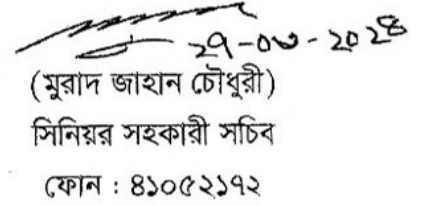 ২৭-০৩-২০২৪
(মুরাদ জাহান চৌধুরী)
সিনিয়র সহকারী সচিব
ফোন : ৪১০৫২১৭২